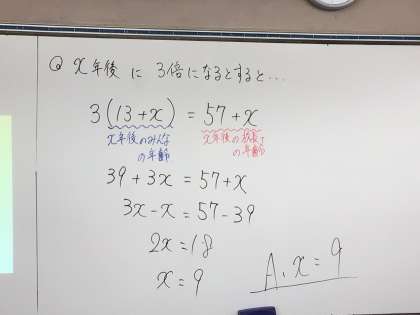 Q x年後に3倍になるとすると...
3(13+x) = 57+x
x年後のみんなの年齢
x年後の校長T
の年齢
39+3x=57+x
3x-x=57-39
2x=18
x=9
A. x=9